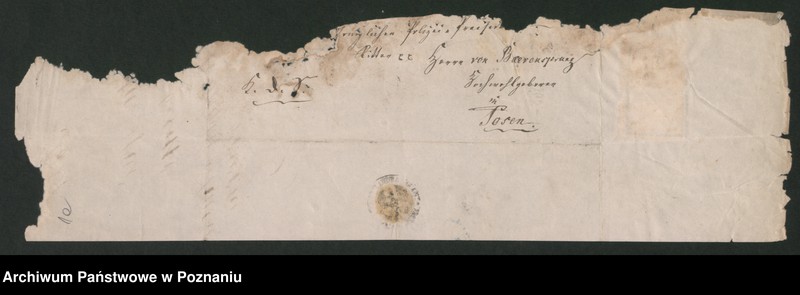 Königlichen Polizei=Präsidenten
Ritter ec Herrn von Baerensprung
K. D. S.
Hochwohlgeboren
in
Posen.
Archiwum Państwowe w Poznaniu